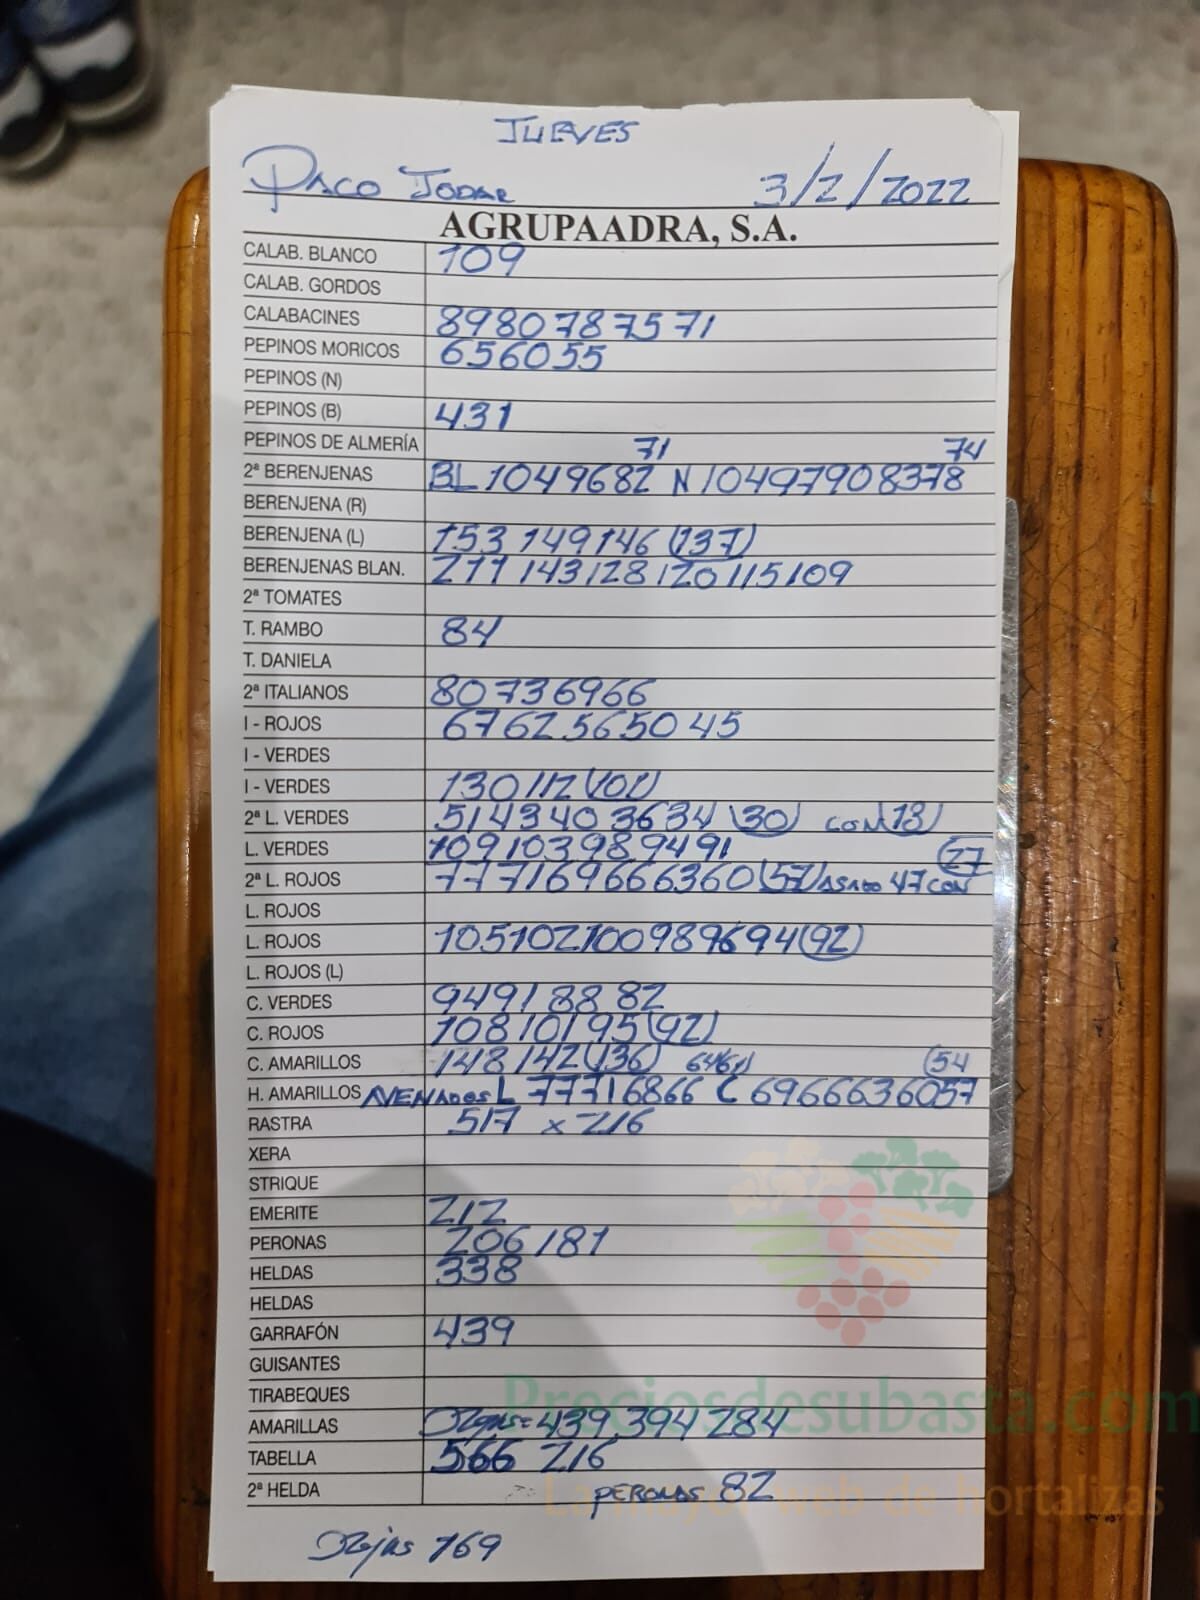 JUEVES
PACO JODAR 3/2/2022
AGRUPAADRA, S.A.
CALAB. BLANCO 109
CALAB. GORDOS
CALABACINES 8980787571
PEPINOS MORICOS 656055
PEPINOS (N)
PEPINOS (B) 431
PEPINOS DE ALMERÍA 71 74
2ª BERENJENAS BL 1049682 N 10497908378
BERENJENA (R)
BERENJENA (L) 153 149 146 (137)
BERENJENAS BLAN. 211 143 128 120 115 109
2ª TOMATES
T. RAMBO 84
T. DANIELA
2ª ITALIANOS 80736966
I - ROJOS 6762565045
I - VERDES
I - VERDES 130 112 (101)
2ª L. VERDES 5143403634 (30) CON 18)
L. VERDES 109103989491 (27)
2ª L. ROJOS 777169666360 (57) ASADO 47 CON
L. ROJOS
L. ROJOS 105102100989694 (92)
L. ROJOS (L)
C. VERDES 94918882
C. ROJOS 10810195 (92)
C. AMARILLOS 148 142 (136) 64 61) (54
H. AMARILLOS AVENADOS L 77716866 C 6966636057
RASTRA 517 x 216
XERA
STRIQUE
EMERITE 212
PERONAS 206 181
HELDAS 338
HELDAS
GARRAFÓN 439
GUISANTES
TIRABEQUES
AMARILLAS Rojas = 439 394 284
TABELLA 566 216
2ª HELDA PERONAS 82
Rojas 169
Preciosdesubasta.com
La mayor web de hortalizas